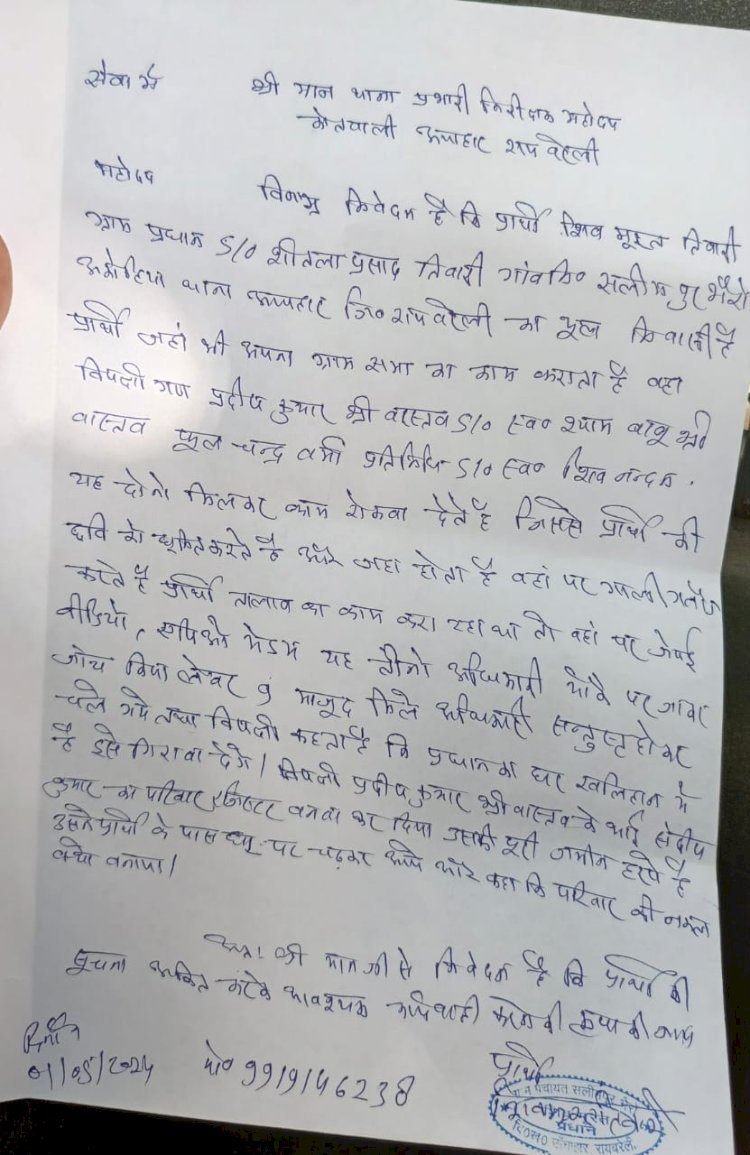 सेवा में
श्री मान थाना प्रभारी निरीक्षक महोदय
कोतवाली ऊचाहार राय बरेली
महोदय
विनम्र निवेदन है कि प्रार्थी शिव मूरत तिवारी
ग्राम प्रधान S/O शीतला प्रसाद तिवारी गांव नि० सलीमपुर भैरो
थाना ऊचाहार जि० राय बरेली का मूल निवासी है
प्रार्थी जहां भी अपना ग्राम सभा का काम कराता है वहा
विपक्षी गण प्रदीप कुमार श्री वास्तव S/O स्व० श्याम बाबू श्री
वास्तव फूल चन्द्र वर्मा प्रतिनिधि S/O स्व० शिव नन्दन .
यह दोनो मिलकर काम रोकवा देते है जिससे प्रार्थी की
छवि को धूमिल करते है और जहा होता है वहां पर गाली गलौज
करते है प्रार्थी तालाब का काम करा रहा था तो वहां पर जेई
वीडियो, एपिओ मेडम यह तीनो अधिकारी मौके पर जाकर
जांच किया लेबर 9 माजूद मिले अधिकारी सन्तुस्ट होकर
चले गये तथा विपक्षी कहता है कि प्रधान का घर खलिहान मे
है इसे गिरावा देगे। विपक्षी प्रदीप कुमार श्री वास्तव के भाई संदीप
कुमार का परिवार रजिस्टर बनवा कर दिया उसकी पूरी जमीन हड़पे है
उसने प्रार्थी के पास पर चढ़कर आये और कहा कि परिवार की नकल
क्यो बनाया।
अतः श्री मान जी से निवेदन है कि प्रार्थी की
सूचना अंकित करके आवश्यक कार्यवाही करने की कृपा की जाय
दिनाँक
01/05/2024 मो० 9919146238
प्रार्थी
ग्राम पंचायत सलीमपुर भैरो
प्रधान
वि०ख० ऊँचाहार, रायबरेली.